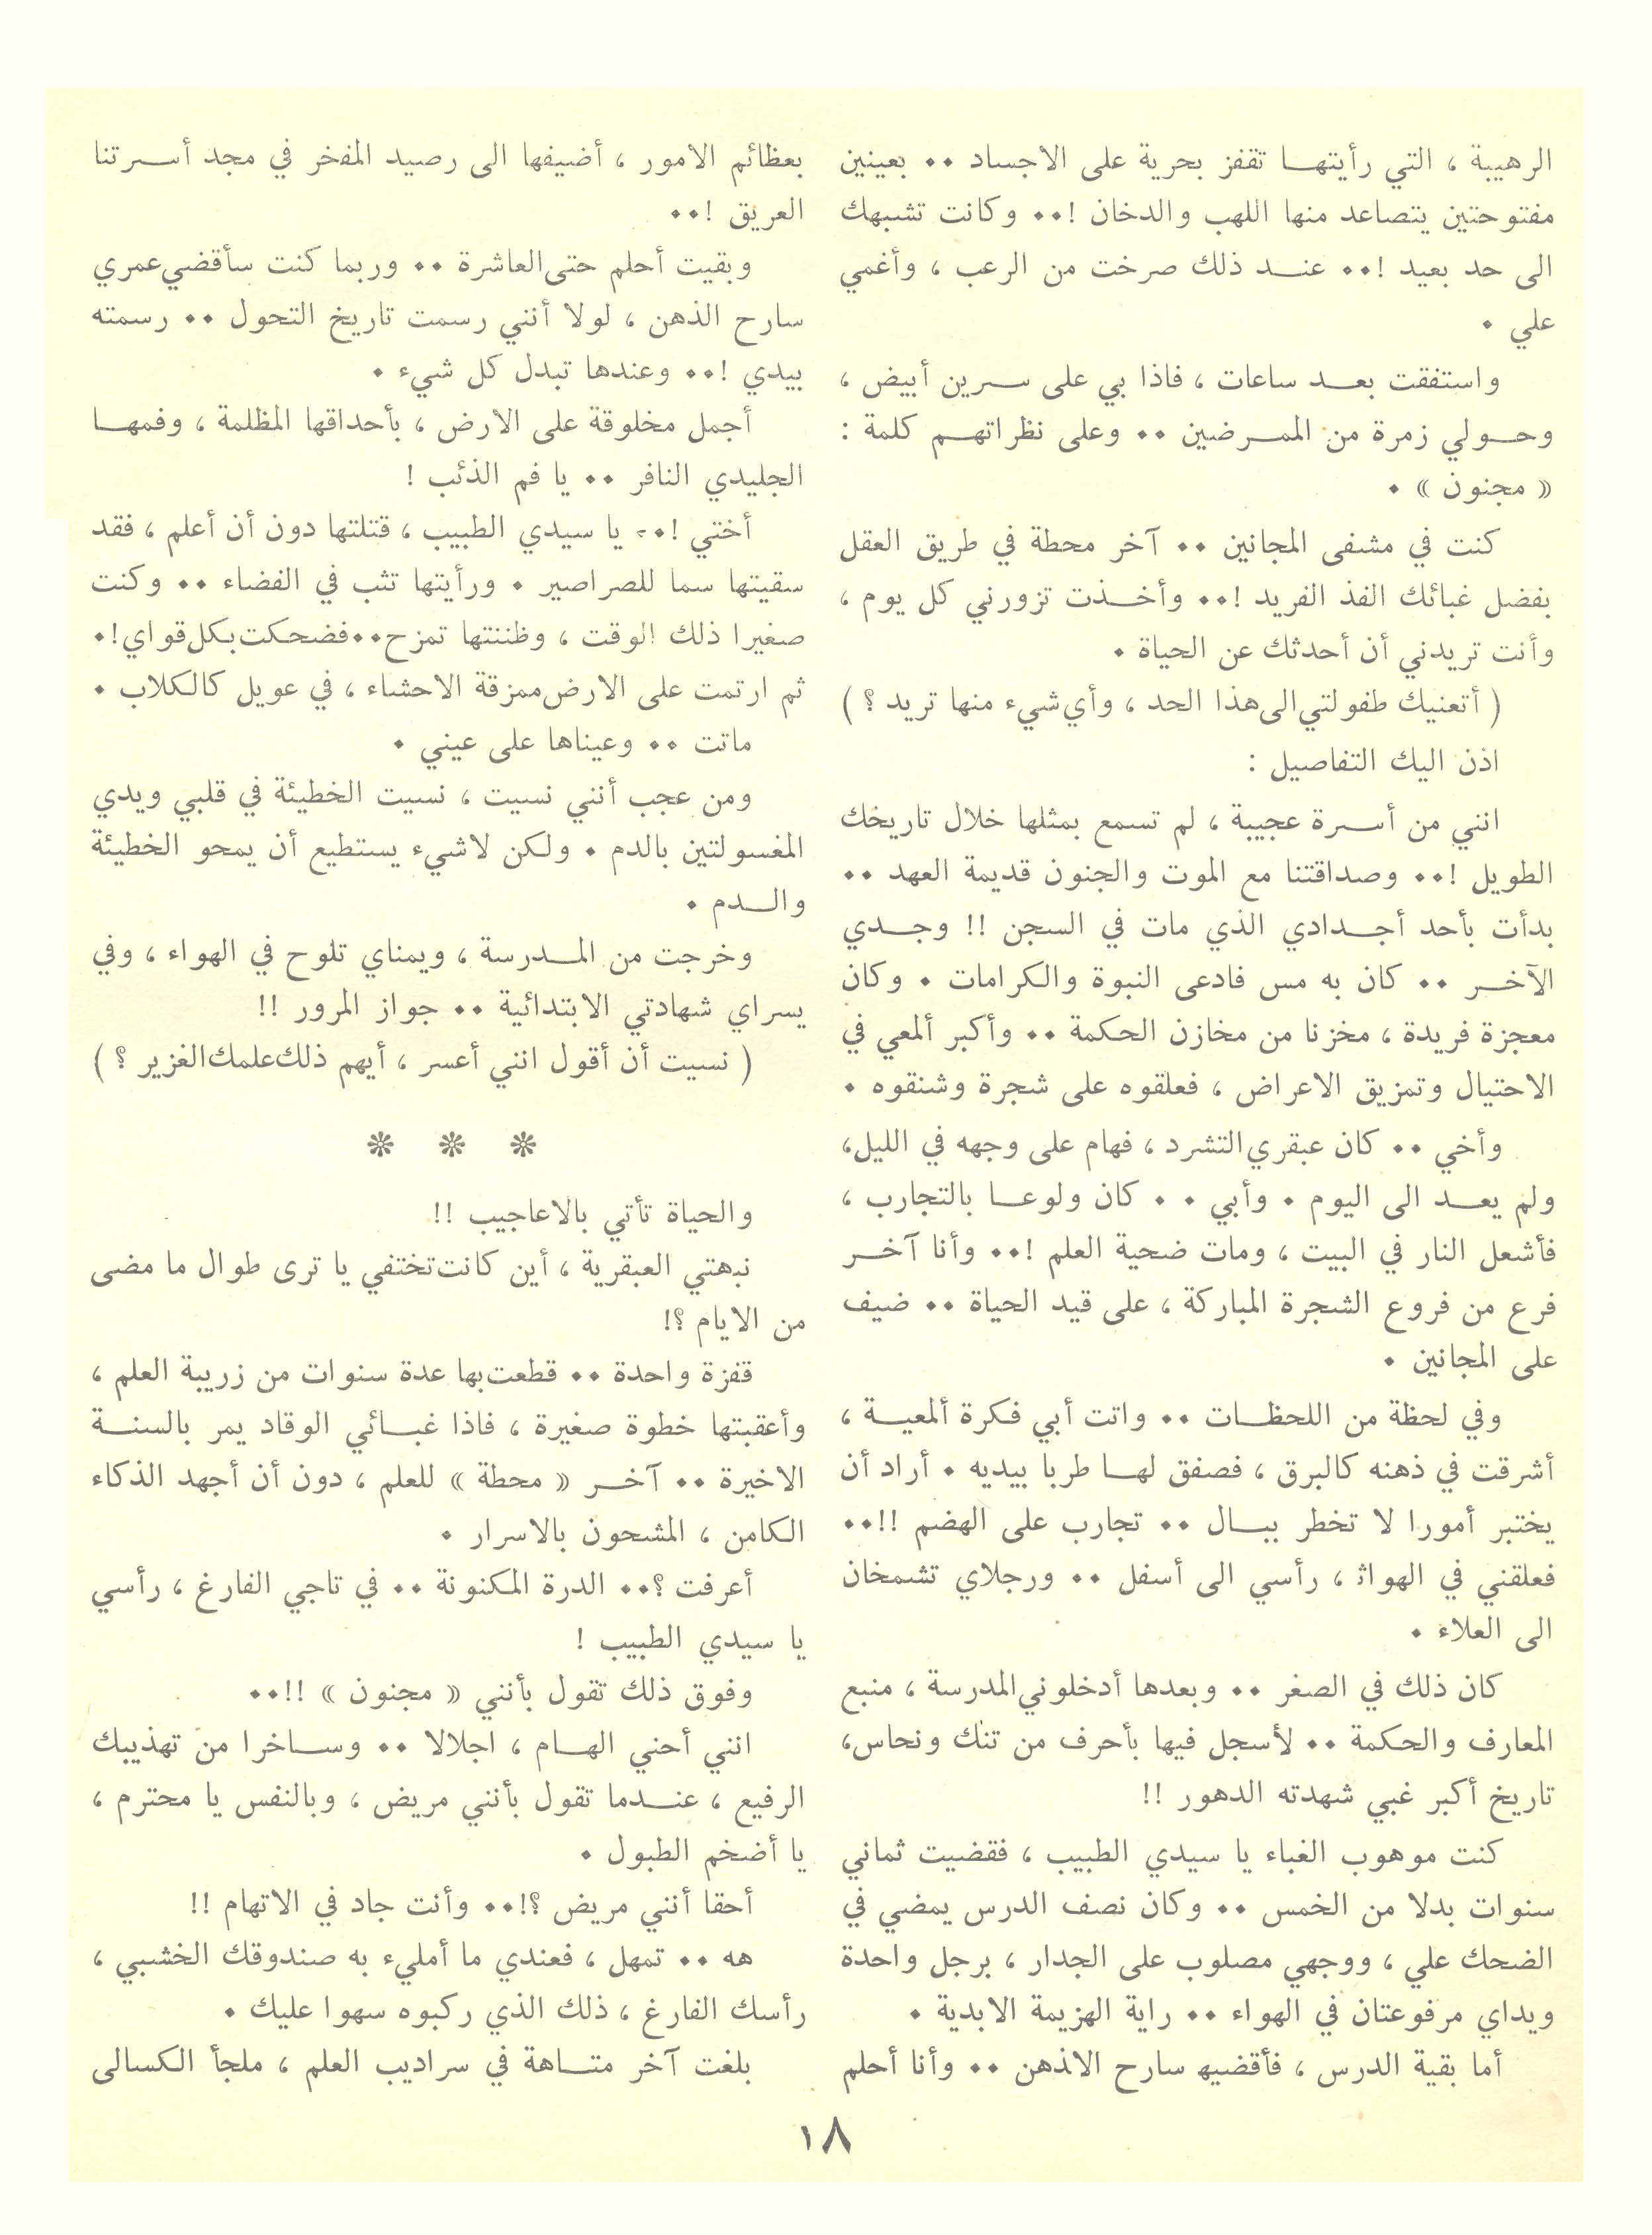 الرهيبة ، التي رأيتهـا تقفز بحرية على الاجساد ٠٠ بعينين
مفتوحتين يتصاعد منها اللهب والدخان !٠٠ وكانت تشبهك
الى حد بعيد !٠٠ عنــد ذلك صرخت من الرعب ، وأغمي
علي ٠
واستفقت بعــد ساعات ، فاذا بي على ســرين أبيض ،
وحــولي زمرة من الممــرضين ٠٠ وعلى نظراتهــم كلمة :
« مجنون » ٠
كنت في مشفى المجانين ٠٠ آخر محطة في طريق العقل
بفضل غبائك الفذ الفريد !٠٠ وأخــذت تزورني كل يوم ،
وأنت تريدني أن أحدثك عن الحياة ٠
( أتعنيك طفولتي الى هذا الحد ، وأي شيء منها تريد ؟ )
اذن اليك التفاصيل :
انني من أســرة عجيبة ، لم تسمع بمثلها خلال تاريخك
الطويل !٠٠ وصداقتنا مع الموت والجنون قديمة العهد ٠٠
بدأت بأحد أجــدادي الذي مات في السجن !! وجــدي
الآخــر ٠٠ كان به مس فادعى النبوة والكرامات ٠ وكان
معجزة فريدة ، مخزنا من مخازن الحكمة ٠٠ وأكبر ألمعي في
الاحتيال وتمزيق الاعراض ، فعلقوه على شجرة وشنقوه ٠
وأخي ٠٠ كان عبقري التشرد ، فهام على وجهه في الليل،
ولم يعــد الى اليوم ٠ وأبي ٠ ٠ كان ولوعــا بالتجارب ،
فأشعل النار في البيت ، ومات ضحية العلم !٠٠ وأنا آخــر
فرع من فروع الشجرة المباركة ، على قيد الحياة ٠٠ ضيف
على المجانين ٠
وفي لحظة من اللحظــات ٠٠ واتت أبي فكرة ألمعيــة ،
أشرقت في ذهنه كالبرق ، فصفق لهــا طربا بيديه ٠ أراد أن
يختبر أمورا لا تخطر ببــال ٠٠ تجارب على الهضم !!٠٠
فعلقني في الهواث ، رأسي الى أسفل ٠٠ ورجلاي تشمخان
الى العلاء ٠
كان ذلك في الصغر ٠٠ وبعدها أدخلوني المدرسة ، منبع
المعارف والحكمة ٠٠ لأسجل فيها بأحرف من تنك ونحاس،
تاريخ أكبر غبي شهدته الدهور !!
كنت موهوب الغباء يا سيدي الطبيب ، فقضيت ثماني
سنوات بدلا من الخمس ٠٠ وكان نصف الدرس يمضي في
الضحك علي ، ووجهي مصلوب على الجدار ، برجل واحدة
ويداي مرفوعتان في الهواء ٠٠ راية الهزيمة الابدية ٠
أما بقية الدرس ، فأقضيه سارح الاذهن ٠٠ وأنا أحلم
بعظائم الامور ، أضيفها الى رصيد المفخر في مجد أســرتنا
العريق !٠٠
وبقيت أحلم حتى العاشرة ٠٠ وربما كنت سأقضي عمري
سارح الذهن ، لولا أنني رسمت تاريخ التحول ٠٠ رسمته
بيدي !٠٠ وعندها تبدل كل شيء ٠
أجمل مخلوقة على الارض ، بأحداقها المظلمة ، وفمهــا
الجليدي النافر ٠٠ يا فم الذئب !
أختي !٠٠ يا سيدي الطبيب ، قتلتها دون أن أعلم ، فقد
سقيتها سما للصراصير ٠ ورأيتها تثب في الفضاء ٠٠ وكنت
صغيرا ذلك الوقت ، وظننتها تمزح٠٠فضحكت بكل قواي !٠
ثم ارتمت على الارض ممزقة الاحشاء ، في عويل كالكلاب ٠
ماتت ٠٠ وعيناها على عيني ٠
ومن عجب أنني نسيت ، نسيت الخطيئة في قلبي ويدي
المغسولتين بالدم ٠ ولكن لاشيء يستطيع أن يمحو الخطيئة
والــدم ٠
وخرجت من المــدرسة ، ويمناي تلوح في الهواء ، وفي
يسراي شهادتي الابتدائية ٠٠ جواز المرور !!
( نسيت أن أقول انني أعسر ، أيهم ذلك علمك الغزير ؟ )
❊ ❊ ❊
والحياة تأتي بالاعاجيب !!
نبهتي العبقرية ، أين كانت تختفي يا ترى طوال ما مضى
من الايام ؟!
قفزة واحدة ٠٠ قطعت بها عدة سنوات من زريبة العلم ،
وأعقبتها خطوة صغيرة ، فاذا غبــائي الوقاد يمر بالسنــة
الاخيرة ٠٠ آخــر « محطة » للعلم ، دون أن أجهد الذكاء
الكامن ، المشحون بالاسرار ٠
أعرفت ؟٠٠ الدرة المكنونة ٠٠ في تاجي الفارغ ، رأسي
يا سيدي الطبيب !
وفوق ذلك تقول بأنني « مجنون » !!٠٠
انني أحني الهــام ، اجلالا ٠٠ وســاخرا من تهذيبك
الرفيع ، عنــدما تقول بأنني مريض ، وبالنفس يا محترم ،
يا أضخم الطبول ٠
أحقا أنني مريض ؟!٠٠ وأنت جاد في الاتهام !!
هه ٠٠ تمهل ، فعندي ما أمليء به صندوقك الخشبي ،
رأسك الفارغ ، ذلك الذي ركبوه سهوا عليك ٠
بلغت آخر متــاهة في سراديب العلم ، ملجأ الكسالى
١٨